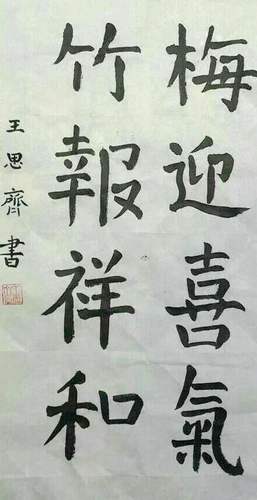 梅迎喜氣
竹報祥和
王思齊書